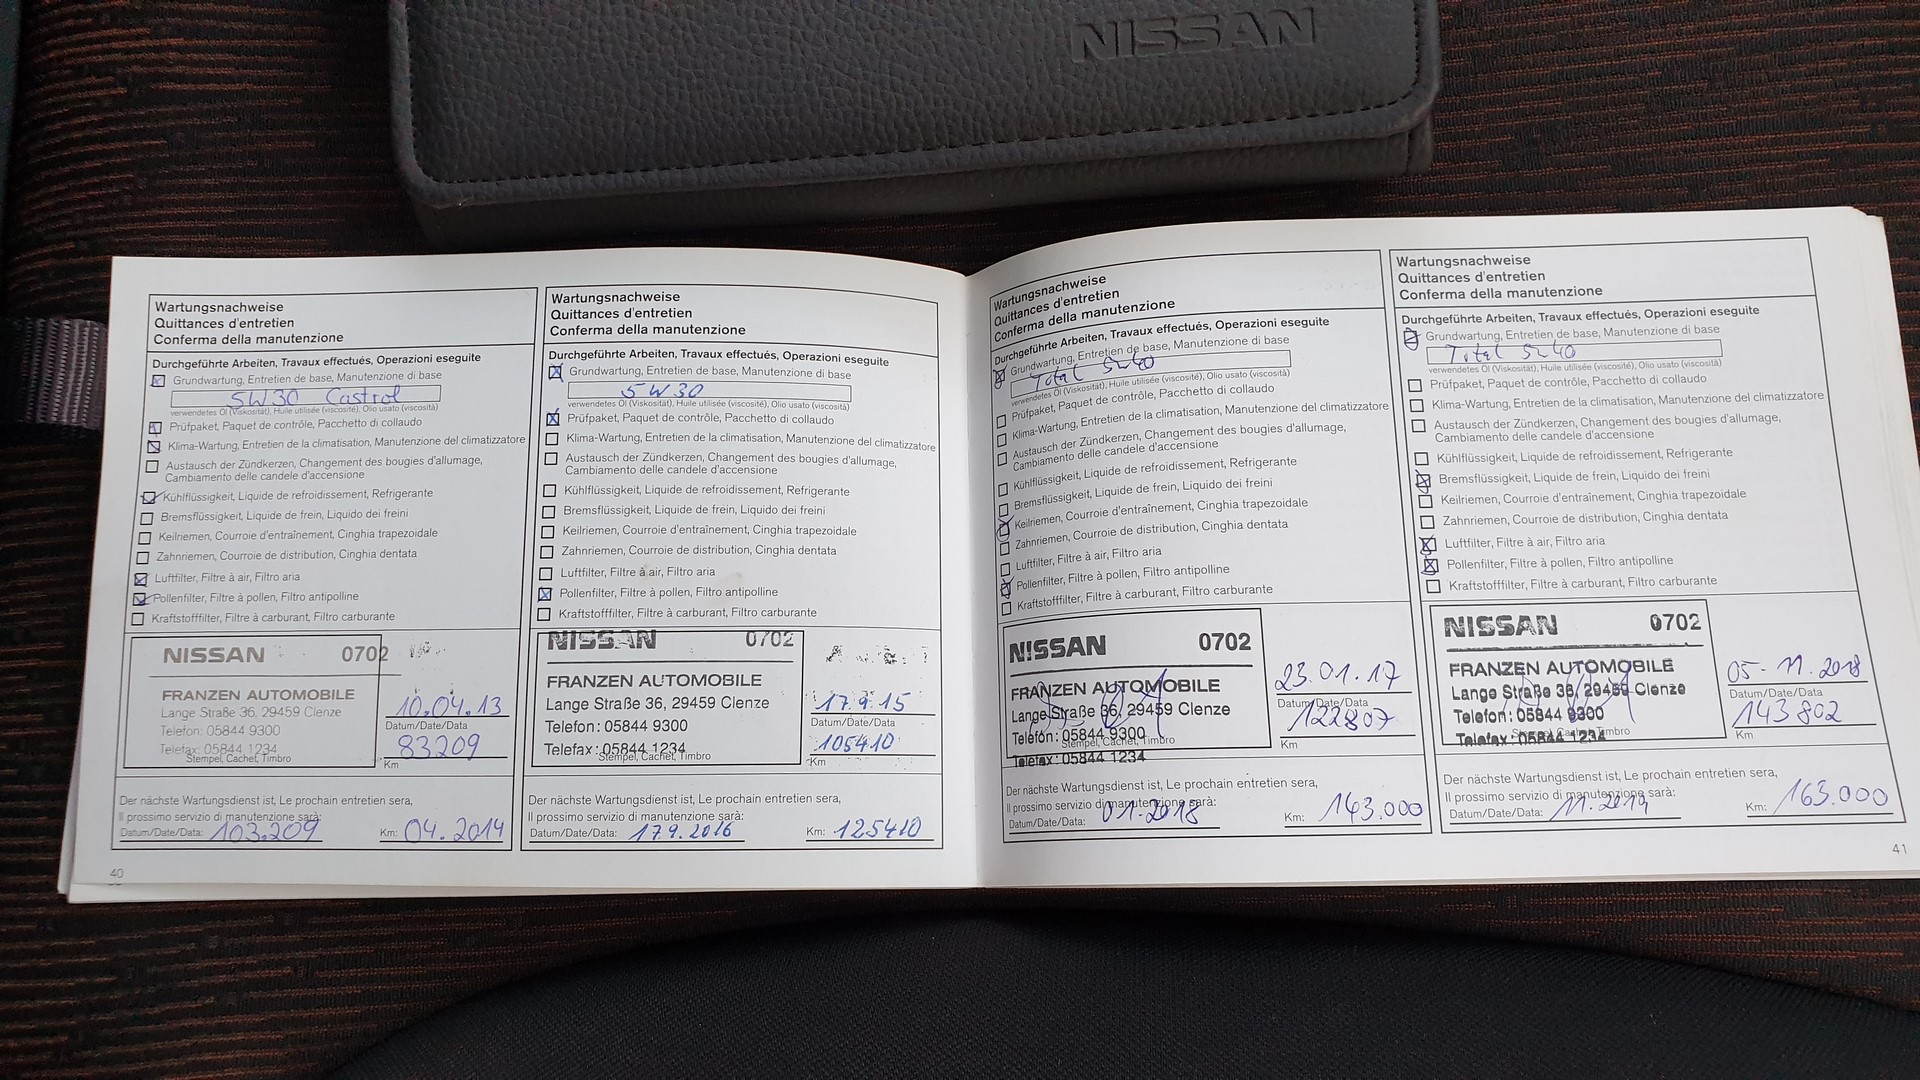 NISSAN
Wartungsnachweise
Quittances d'entretien
Conferma della manutenzione
Durchgeführte Arbeiten, Travaux effectués, Operazioni eseguite
Grundwartung, Entretien de base, Manutenzione di base
5W30 Castrol
verwendetes Öl (Viskosität), Huile utilisée (viscosité), Olio usato (viscosità)
Prüfpaket, Paquet de contrôle, Pacchetto di collaudo
Klima-Wartung, Entretien de la climatisation, Manutenzione del climatizzatore
Austausch der Zündkerzen, Changement des bougies d'allumage,
Cambiamento delle candele d'accensione
Kühlflüssigkeit, Liquide de refroidissement, Refrigerante
Bremsflüssigkeit, Liquide de frein, Liquido dei freini
Keilriemen, Courroie d'entraînement, Cinghia trapezoidale
Zahnriemen, Courroie de distribution, Cinghia dentata
Luftfilter, Filtre à air, Filtro aria
Pollenfilter, Filtre à pollen, Filtro antipolline
Kraftstofffilter, Filtre à carburant, Filtro carburante
NISSAN 0702
FRANZEN AUTOMOBILE
Lange Straße 36, 29459 Clenze
Telefon: 05844 9300
Telefax: 05844 1234
Stempel, Cachet, Timbro
10.04.13
Datum/Date/Data
83209
Km
Der nächste Wartungsdienst ist, Le prochain entretien sera,
Il prossimo servizio di manutenzione sarà:
Datum/Date/Data: 103.209 Km: 04.2014
40
Wartungsnachweise
Quittances d'entretien
Conferma della manutenzione
Durchgeführte Arbeiten, Travaux effectués, Operazioni eseguite
Grundwartung, Entretien de base, Manutenzione di base
5W30
verwendetes Öl (Viskosität), Huile utilisée (viscosité), Olio usato (viscosità)
Prüfpaket, Paquet de contrôle, Pacchetto di collaudo
Klima-Wartung, Entretien de la climatisation, Manutenzione del climatizzatore
Austausch der Zündkerzen, Changement des bougies d'allumage,
Cambiamento delle candele d'accensione
Kühlflüssigkeit, Liquide de refroidissement, Refrigerante
Bremsflüssigkeit, Liquide de frein, Liquido dei freini
Keilriemen, Courroie d'entraînement, Cinghia trapezoidale
Zahnriemen, Courroie de distribution, Cinghia dentata
Luftfilter, Filtre à air, Filtro aria
Pollenfilter, Filtre à pollen, Filtro antipolline
Kraftstofffilter, Filtre à carburant, Filtro carburante
NISSAN 0702
FRANZEN AUTOMOBILE
Lange Straße 36, 29459 Clenze
Telefon: 05844 9300
Telefax: 05844 1234
Stempel, Cachet, Timbro
17.9.15
Datum/Date/Data
105410
Km
Der nächste Wartungsdienst ist, Le prochain entretien sera,
Il prossimo servizio di manutenzione sarà:
Datum/Date/Data: 17.9.2016 Km: 125410
Wartungsnachweise
Quittances d'entretien
Conferma della manutenzione
Durchgeführte Arbeiten, Travaux effectués, Operazioni eseguite
Grundwartung, Entretien de base, Manutenzione di base
Total 5w40
verwendetes Öl (Viskosität), Huile utilisée (viscosité), Olio usato (viscosità)
Prüfpaket, Paquet de contrôle, Pacchetto di collaudo
Klima-Wartung, Entretien de la climatisation, Manutenzione del climatizzatore
Austausch der Zündkerzen, Changement des bougies d'allumage,
Cambiamento delle candele d'accensione
Kühlflüssigkeit, Liquide de refroidissement, Refrigerante
Bremsflüssigkeit, Liquide de frein, Liquido dei freini
Keilriemen, Courroie d'entraînement, Cinghia trapezoidale
Zahnriemen, Courroie de distribution, Cinghia dentata
Luftfilter, Filtre à air, Filtro aria
Pollenfilter, Filtre à pollen, Filtro antipolline
Kraftstofffilter, Filtre à carburant, Filtro carburante
NISSAN 0702
FRANZEN AUTOMOBILE
Lange Straße 36, 29459 Clenze
Telefon: 05844 9300
Stempel, Cachet, Timbro
Telefax: 05844 1234
23.01.17
Datum/Date/Data
122807
Km
Der nächste Wartungsdienst ist, Le prochain entretien sera,
Il prossimo servizio di manutenzione sarà:
Datum/Date/Data: 01.2018 Km: 143.000
Wartungsnachweise
Quittances d'entretien
Conferma della manutenzione
Durchgeführte Arbeiten, Travaux effectués, Operazioni eseguite
Grundwartung, Entretien de base, Manutenzione di base
Total 5w40
verwendetes Öl (Viskosität), Huile utilisée (viscosité), Olio usato (viscosità)
Prüfpaket, Paquet de contrôle, Pacchetto di collaudo
Klima-Wartung, Entretien de la climatisation, Manutenzione del climatizzatore
Austausch der Zündkerzen, Changement des bougies d'allumage,
Cambiamento delle candele d'accensione
Kühlflüssigkeit, Liquide de refroidissement, Refrigerante
Bremsflüssigkeit, Liquide de frein, Liquido dei freini
Keilriemen, Courroie d'entraînement, Cinghia trapezoidale
Zahnriemen, Courroie de distribution, Cinghia dentata
Luftfilter, Filtre à air, Filtro aria
Pollenfilter, Filtre à pollen, Filtro antipolline
Kraftstofffilter, Filtre à carburant, Filtro carburante
NISSAN 0702
FRANZEN AUTOMOBILE
Lange Straße 36, 29459 Clenze
Telefon: 05844 9300
Stempel, Cachet, Timbro
Telefax: 05844 1234
05-11.2018
Datum/Date/Data
143802
Km
Der nächste Wartungsdienst ist, Le prochain entretien sera,
Il prossimo servizio di manutenzione sarà:
Datum/Date/Data: 11.2019 Km: 163.000
41